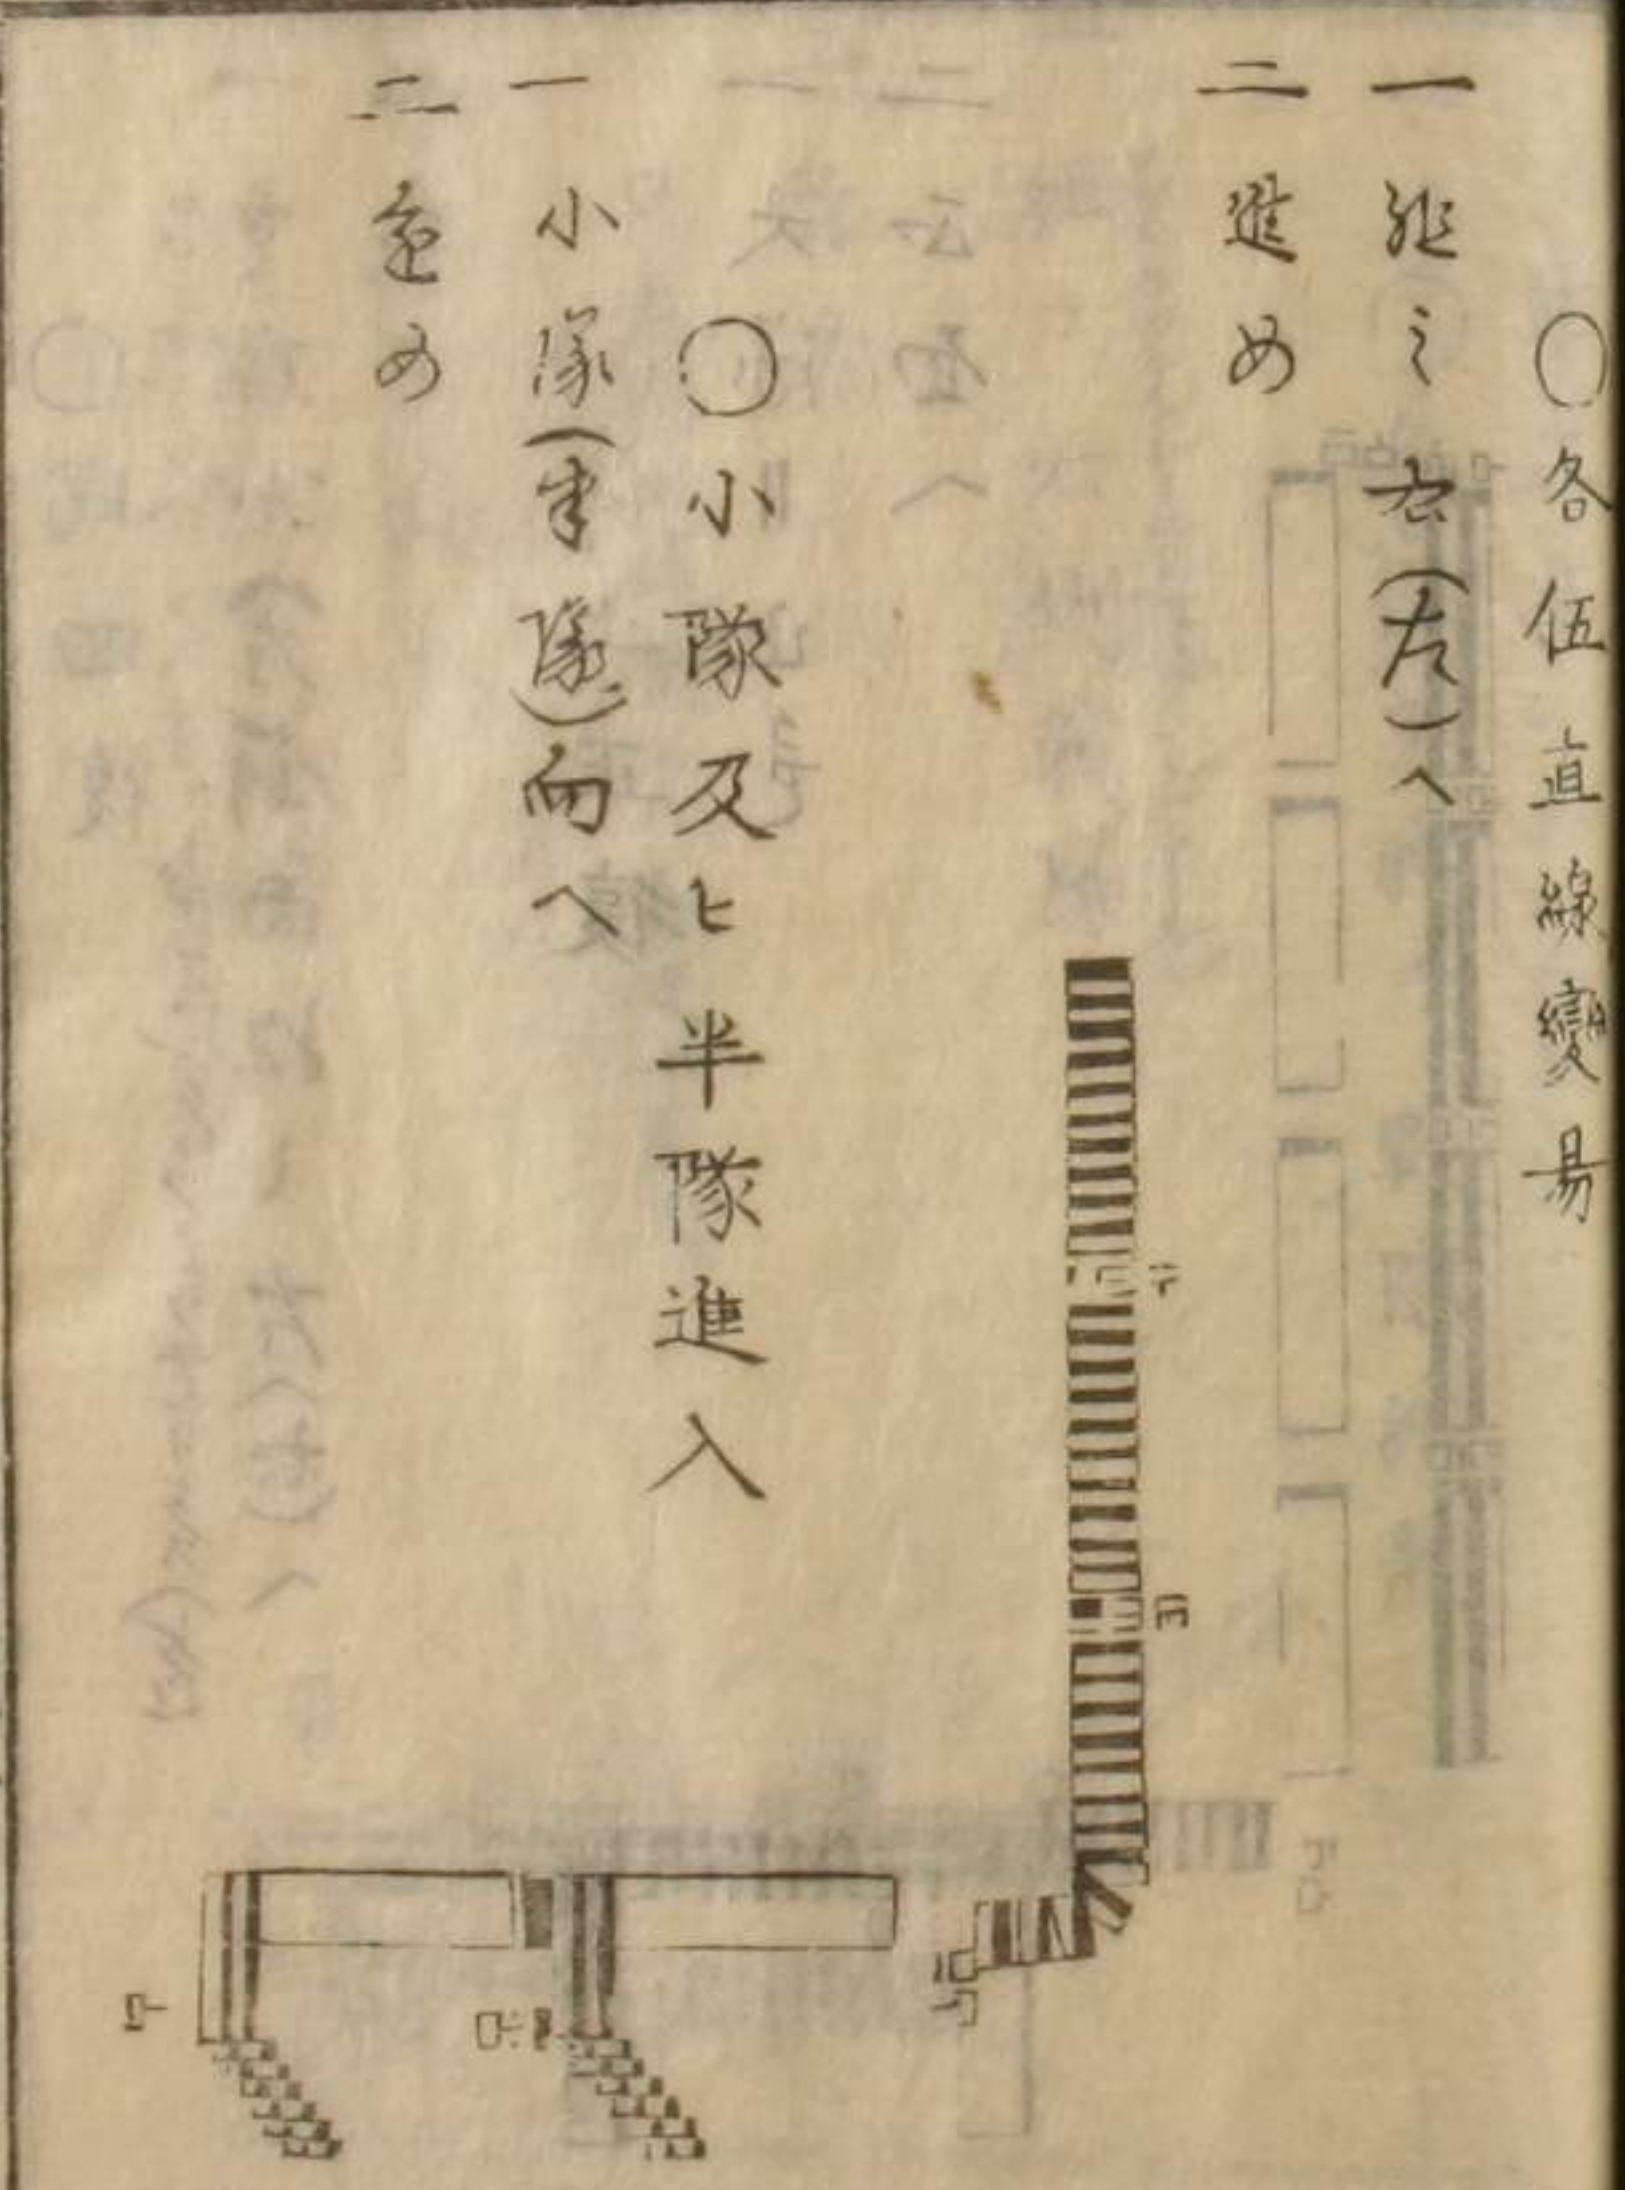 〇各伍直線變易
一 縦之右(左)へ
二 進め
〇小隊及ヒ半隊進入
一 小隊(半隊)向へ
二 進め